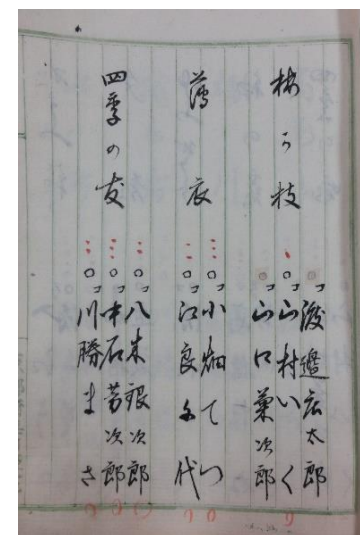 梅か枝
渡邊宏太郎
山村いく
山口菊次郎
薄衣
小畑てつ
江良千代
四季の友
八木銀次郎
中石芳次郎
川勝まさ